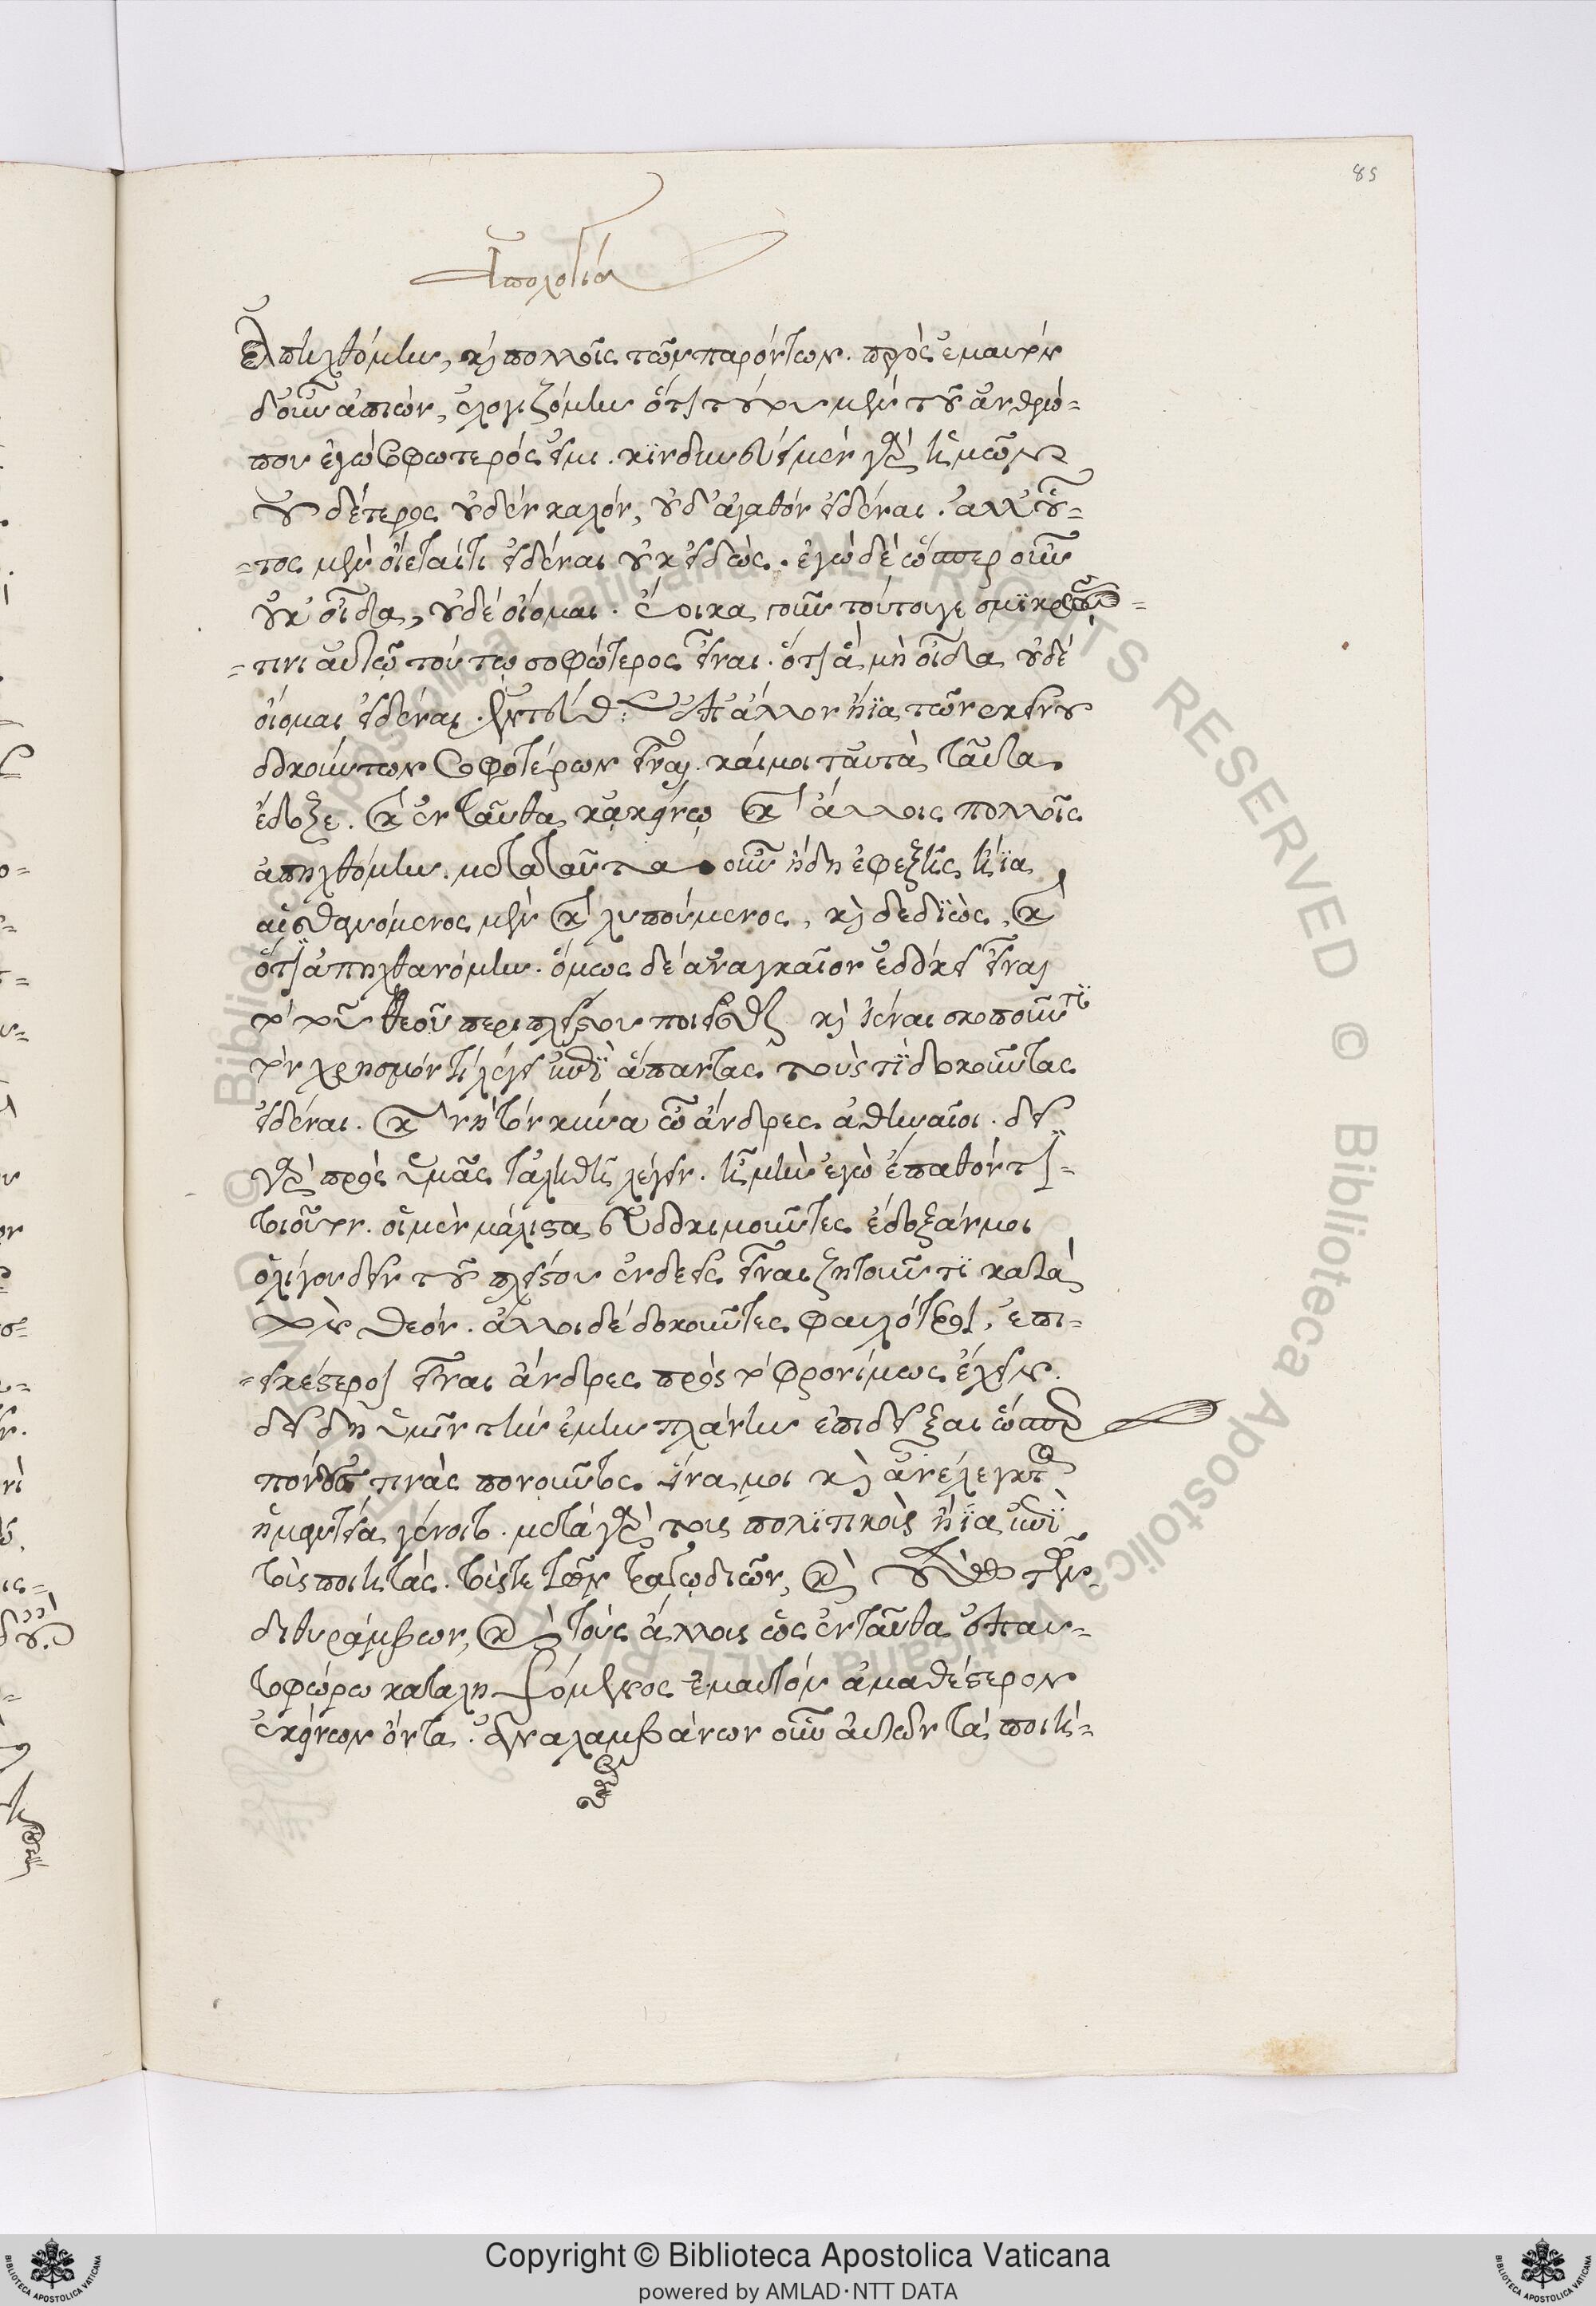 85
Ἀπολογία
ἀπηχθόμην, καὶ πολλοῖς τῶν παρόντων. πρὸς ἐμαυτὸν
δ' οὖν ἀπιὼν, ἐλογιζόμην ὅτι τούτου μὲν τοῦ ἀνθρώ-
που ἐγὼ σοφώτερός εἰμι. κινδυνεύει μὲν γὰρ ἡμῶν
οὐδέτερος οὐδὲν καλὸν, οὐδ' ἀγαθὸν εἰδέναι. ἀλλ' οὗ-
-τος μὲν οἴεταί τι εἰδέναι οὐκ εἰδώς. ἐγὼ δὲ ὥσπερ οὖν
οὐκ οἶδα, οὐδὲ οἴομαι. ἔοικα γοῦν τούτου γε σμϊκρῷ
-τινι αὐτῷ τούτῳ σοφώτερος εἶναι. ὅτι ἃ μὴ οἶδα οὐδὲ
οἴομαι εἰδέναι. ἐντεῦθεν ἐπ' ἄλλον ἤϊα τῶν ἐκείνου
δοκούντων σοφοτέρων εἶναι. καί μοι ταυτὰ ταῦτα
ἔδοξε. καὶ ἐνταῦθα κἀκείνῳ καὶ ἄλλοις πολλοῖς
ἀπηχθόμην. μετὰ ταῦτα οὖν ἤδη ἐφεξῆς ἤϊα
αἰσθανόμενος μὲν καὶ λυπούμενος, καὶ δεδϊὼς, καὶ
ὅτι ἀπηχθανόμην. ὅμως δὲ ἀναγκαῖον ἐδόκει εἶναι
τὸ τοῦ θεοῦ περιπλείστου ποιεῖσθαι καὶ ἰέναι σκοποῦντϊ
τὸν χρησμὸν τί λέγει ἐπῒ ἅπαντας τούς τϊ δοκοῦντας
εἰδέναι. καὶ νὴ τὸν κύνα ὦ ἄνδρες ἀθηναῖοι. δεῖ
γὰρ πρὸς ὑμᾶς τἀληθῆ λέγειν. ἦ μὴν ἐγὼ ἔπαθόν τι
τοιοῦτον. οἱ μὲν μάλιστα εὐδοκιμοῦντες ἔδοξάν μοι
ὀλίγου δεῖν τοῦ πλείστου ἐνδεεῖς εἶναι ζητοῦντϊ κατὰ
τὸν θεόν. ἄλλοι δὲ δοκοῦντες φαυλότεροι, ἐπι-
-εικέστεροι εἶναι ἄνδρες πρὸς τὸ φρονίμως ἔχειν.
δεῖ δὴ ὑμῖν τὴν ἐμὴν πλάνην ἐπιδεῖξαι ὥσπερ
πόνους τινὰς πονοῦντος ἵνα μοι καὶ ἀνέλεγκτος
ἡ μαντεία γένοιτο. μετὰ γὰρ τοὺς πολϊτικοὺς ἤϊα ἐπῒ
τοὺς ποιητάς. τούς τε τῶν τραγῳδιῶν, καὶ τοὺς τῶν
διθυράμβων, καὶ τοὺς ἄλλους ὡς ἐνταῦθα ἐπαυ-
τοφώρῳ καταληψόμενος ἐμαυτὸν ἀμαθέστερον
ἐκείνων ὄντα. ἀναλαμβάνων οὖν αὐτῶν τὰ ποιή-
Copyright © Biblioteca Apostolica Vaticana
powered by AMLAD·NTT DATA